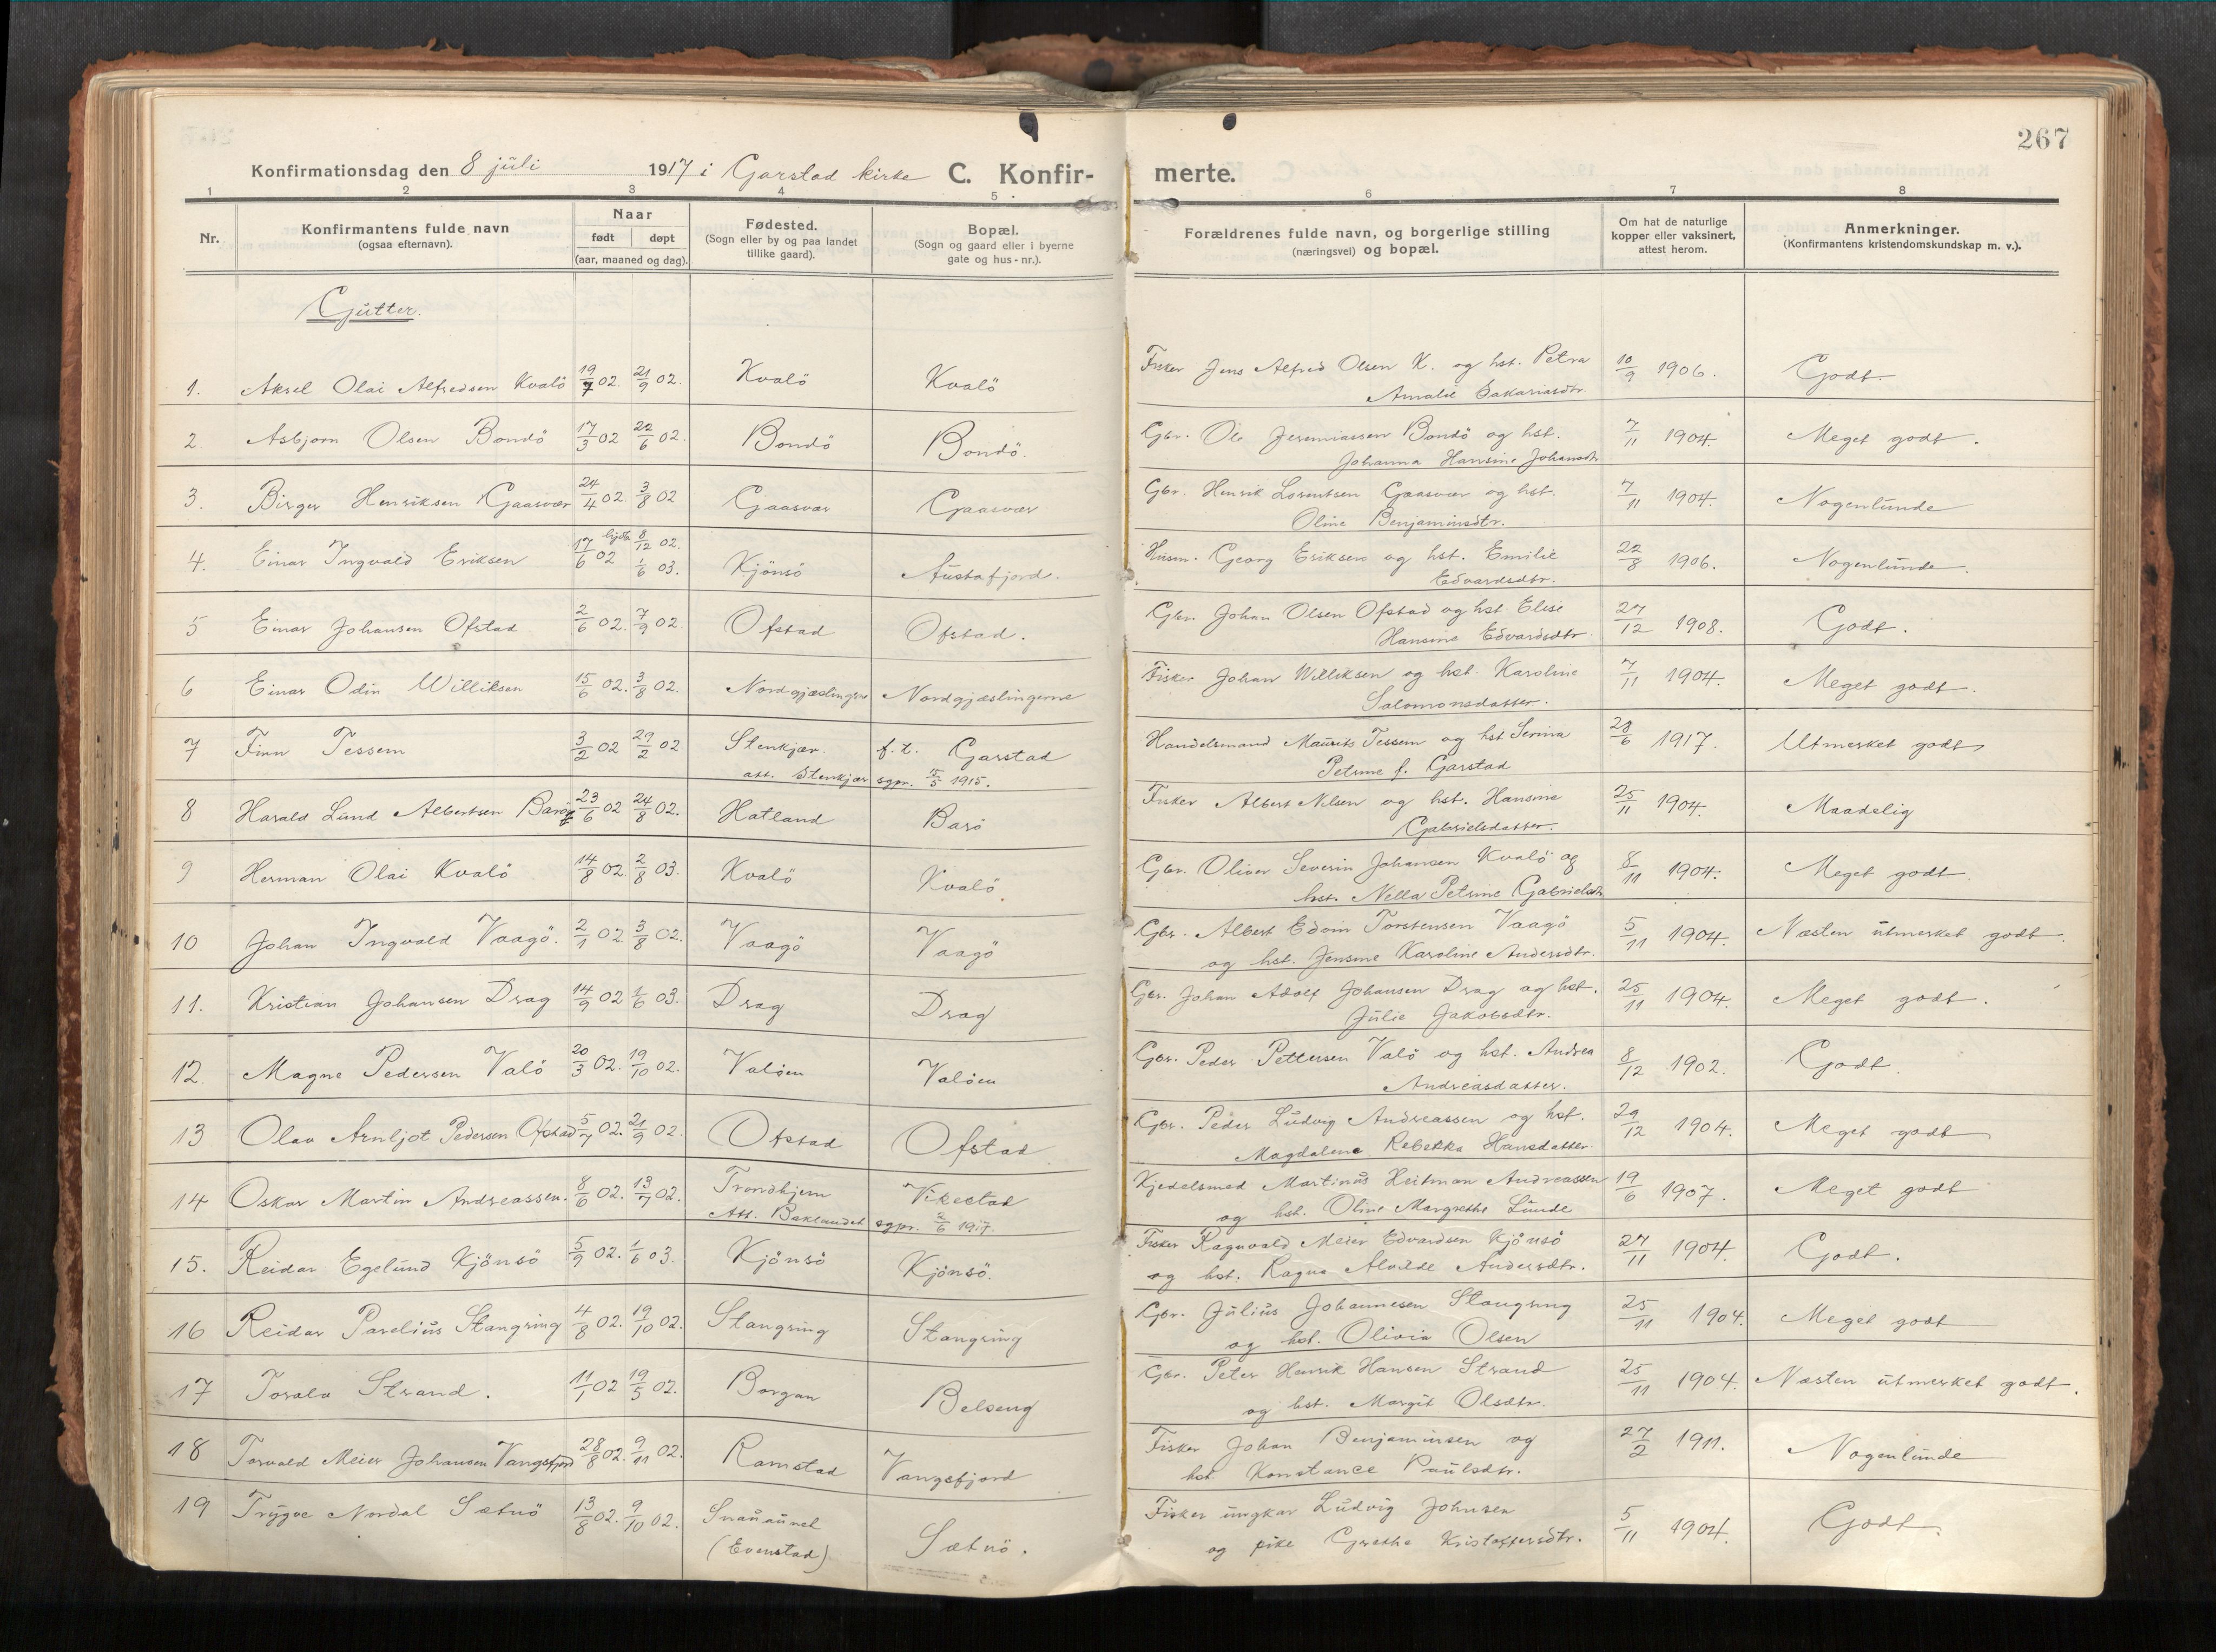 267
Konfirmationsdag den 8 juli 1917 i Garstad kirke C. Konfir- merte.
1 2 3 4 5 6 7 8
Nr. Konfirmantens fulde navn (ogsaa efternavn). Naar født døpt (aar, maaned og dag). Fødested. (Sogn eller by og paa landet tillike gaard). Bopæl. (Sogn og gaard eller i byerne gate og hus-nr.). Forældrenes fulde navn, og borgerlige stilling (næringsvei) og bopæl. Om hat de naturlige kopper eller vaksinert, attest herom. Anmerkninger. (Konfirmantens kristendomskundskap m. v.).
Gutter.
1. Aksel Olai Alfredsen Kvalö 19/7 02. 21/9 02. Kvalö Kvalö Fisker Jens Alfred Olsen K. og hst. Petra 10/9 1906. Godt.
Amalie Sakariasdtr.
2. Asbjørn Olsen Bondö 17/3 02 22/6 02. Bondö Bondö. Gbr. Ole Jeremiassen Bondö og hst. 7/11 1904. Meget godt.
Johanna Hansine Johansdtr
3. Birger Henriksen Gaasvær 24/4 02 3/8 02 Gaasvær Gaasvær Gbr. Henrik Lorentsen Gaasvær og hst. 7/11 1904. Nogenlunde
Oline Benjaminsdtr.
4. Einar Ingvald Eriksen 17/6 02 8/12 02. 1/6 03. Kjönsö Austafjord. Husm. Georg Eriksen og hst. Emilie 22/8 1906. Nogenlunde.
Edvardsdtr.
5 Einar Johansen Ofstad 2/6 02. 7/9 02. Ofstad Ofstad. Gbr. Johan Olsen Ofstad og hst Elise 27/12 1908. Godt.
Hansine Edvardsdtr.
6 Einar Odin Williksen 15/6 02. 3/8 02. Nordgjæslingerne Nordgjæslingerne Fisker Johan Williksen og hst. Karoline 7/11 1904. Meget godt.
Salomonsdatter.
7 Finn Tessem 3/2 02 29/2 02 Stenkjær. f. t. Garstad Handelsmand Maurits Tessem og hst Serina 28/6 1917. Utmerket godt
att. Stenkjær sgpr. 15/5 1915. Petrine f. Garstad
8 Harald Lund Albertsen Barö 23/6 02 24/8 02. Hatland Barö Fisker Albert Nilsen og hst. Hansine 25/11 1904. Maadelig
Gabrielsdatter.
9 Herman Olai Kvalö 14/8 02. 2/8 03. Kvalö Kvalö. Gbr. Oliver Severin Johansen Kvalö og 8/11 1904. Meget godt.
hst. Nella Petrine Gabrielsdtr
10 Johan Ingvald Vaagö. 2/1 02. 3/8 02. Vaagö Vaagö Gbr. Albert Edvin Torstensen Vaagö 5/11 1904. Næsten utmerket godt.
og hst. Jensine Karoline Andersdtr.
11. Kristian Johansen Drag 14/9 02 1/6 03. Drag Drag Gbr. Johan Adolf Johansen Drag og hst. 25/11 1904. Meget godt.
Julie Jakobsdtr.
12. Magne Pedersen Valö 20/3 02. 19/10 02. Valöen Valöen Gbr. Peder Pettersen Valö og hst. Andrea 8/12 1902. Godt.
Andreasdatter.
13 Olav Arnljot Pedersen Ofstad 5/7 02. 21/9 02. Ofstad Ofstad Gbr. Peder Ludvig Andreassen og hst. 29/12 1904. Meget godt
Magdalena Rebekka Hansdatter.
14 Oskar Martin Andreassen. 8/6 02. 13/7 02. Trondhjem Vikestad Kjedelsmed Martinus Heitman Andreassen 19/6 1907. Meget godt
Att. Baklandet sgpr. 2/6 1917. og hst. Oline Margrethe Lunde
15. Reidar Egelund Kjönsö 5/9 02. 1/6 03. Kjönsö Kjönsö. Fisker Ragnvald Meier Edvardsen Kjönsö 27/11 1904. Godt.
og hst. Ragna Alvilde Andersdtr.
16 Reidar Parelius Stangring 4/8 02. 19/10 02. Stangring Stangring Gbr. Julius Johannesen Stangring 25/11 1904. Meget godt
og hst. Olivia Olsen
17 Toralv Strand. 11/1 02 19/5 02. Borgan Belseng Gbr. Peter Henrik Hansen Strand 25/11 1904. Næsten utmerket godt.
og hst. Margit Olsdtr.
18 Torvald Meier Johansen Vangsfjord 28/8 02. 9/11 02. Ramstad Vangsfjord Fisker Johan Benjaminsen og 27/2 1911. Nogenlunde
hst. Konstance Paulsdtr.
19 Trygve Nordal Sætnö 13/8 02. 9/10 02. Snauaunet Sætnö. Fisker ungkar Ludvig Johnsen 5/11 1904. Godt.
(Evenstad) og pike Grethe Kristoffersdtr.